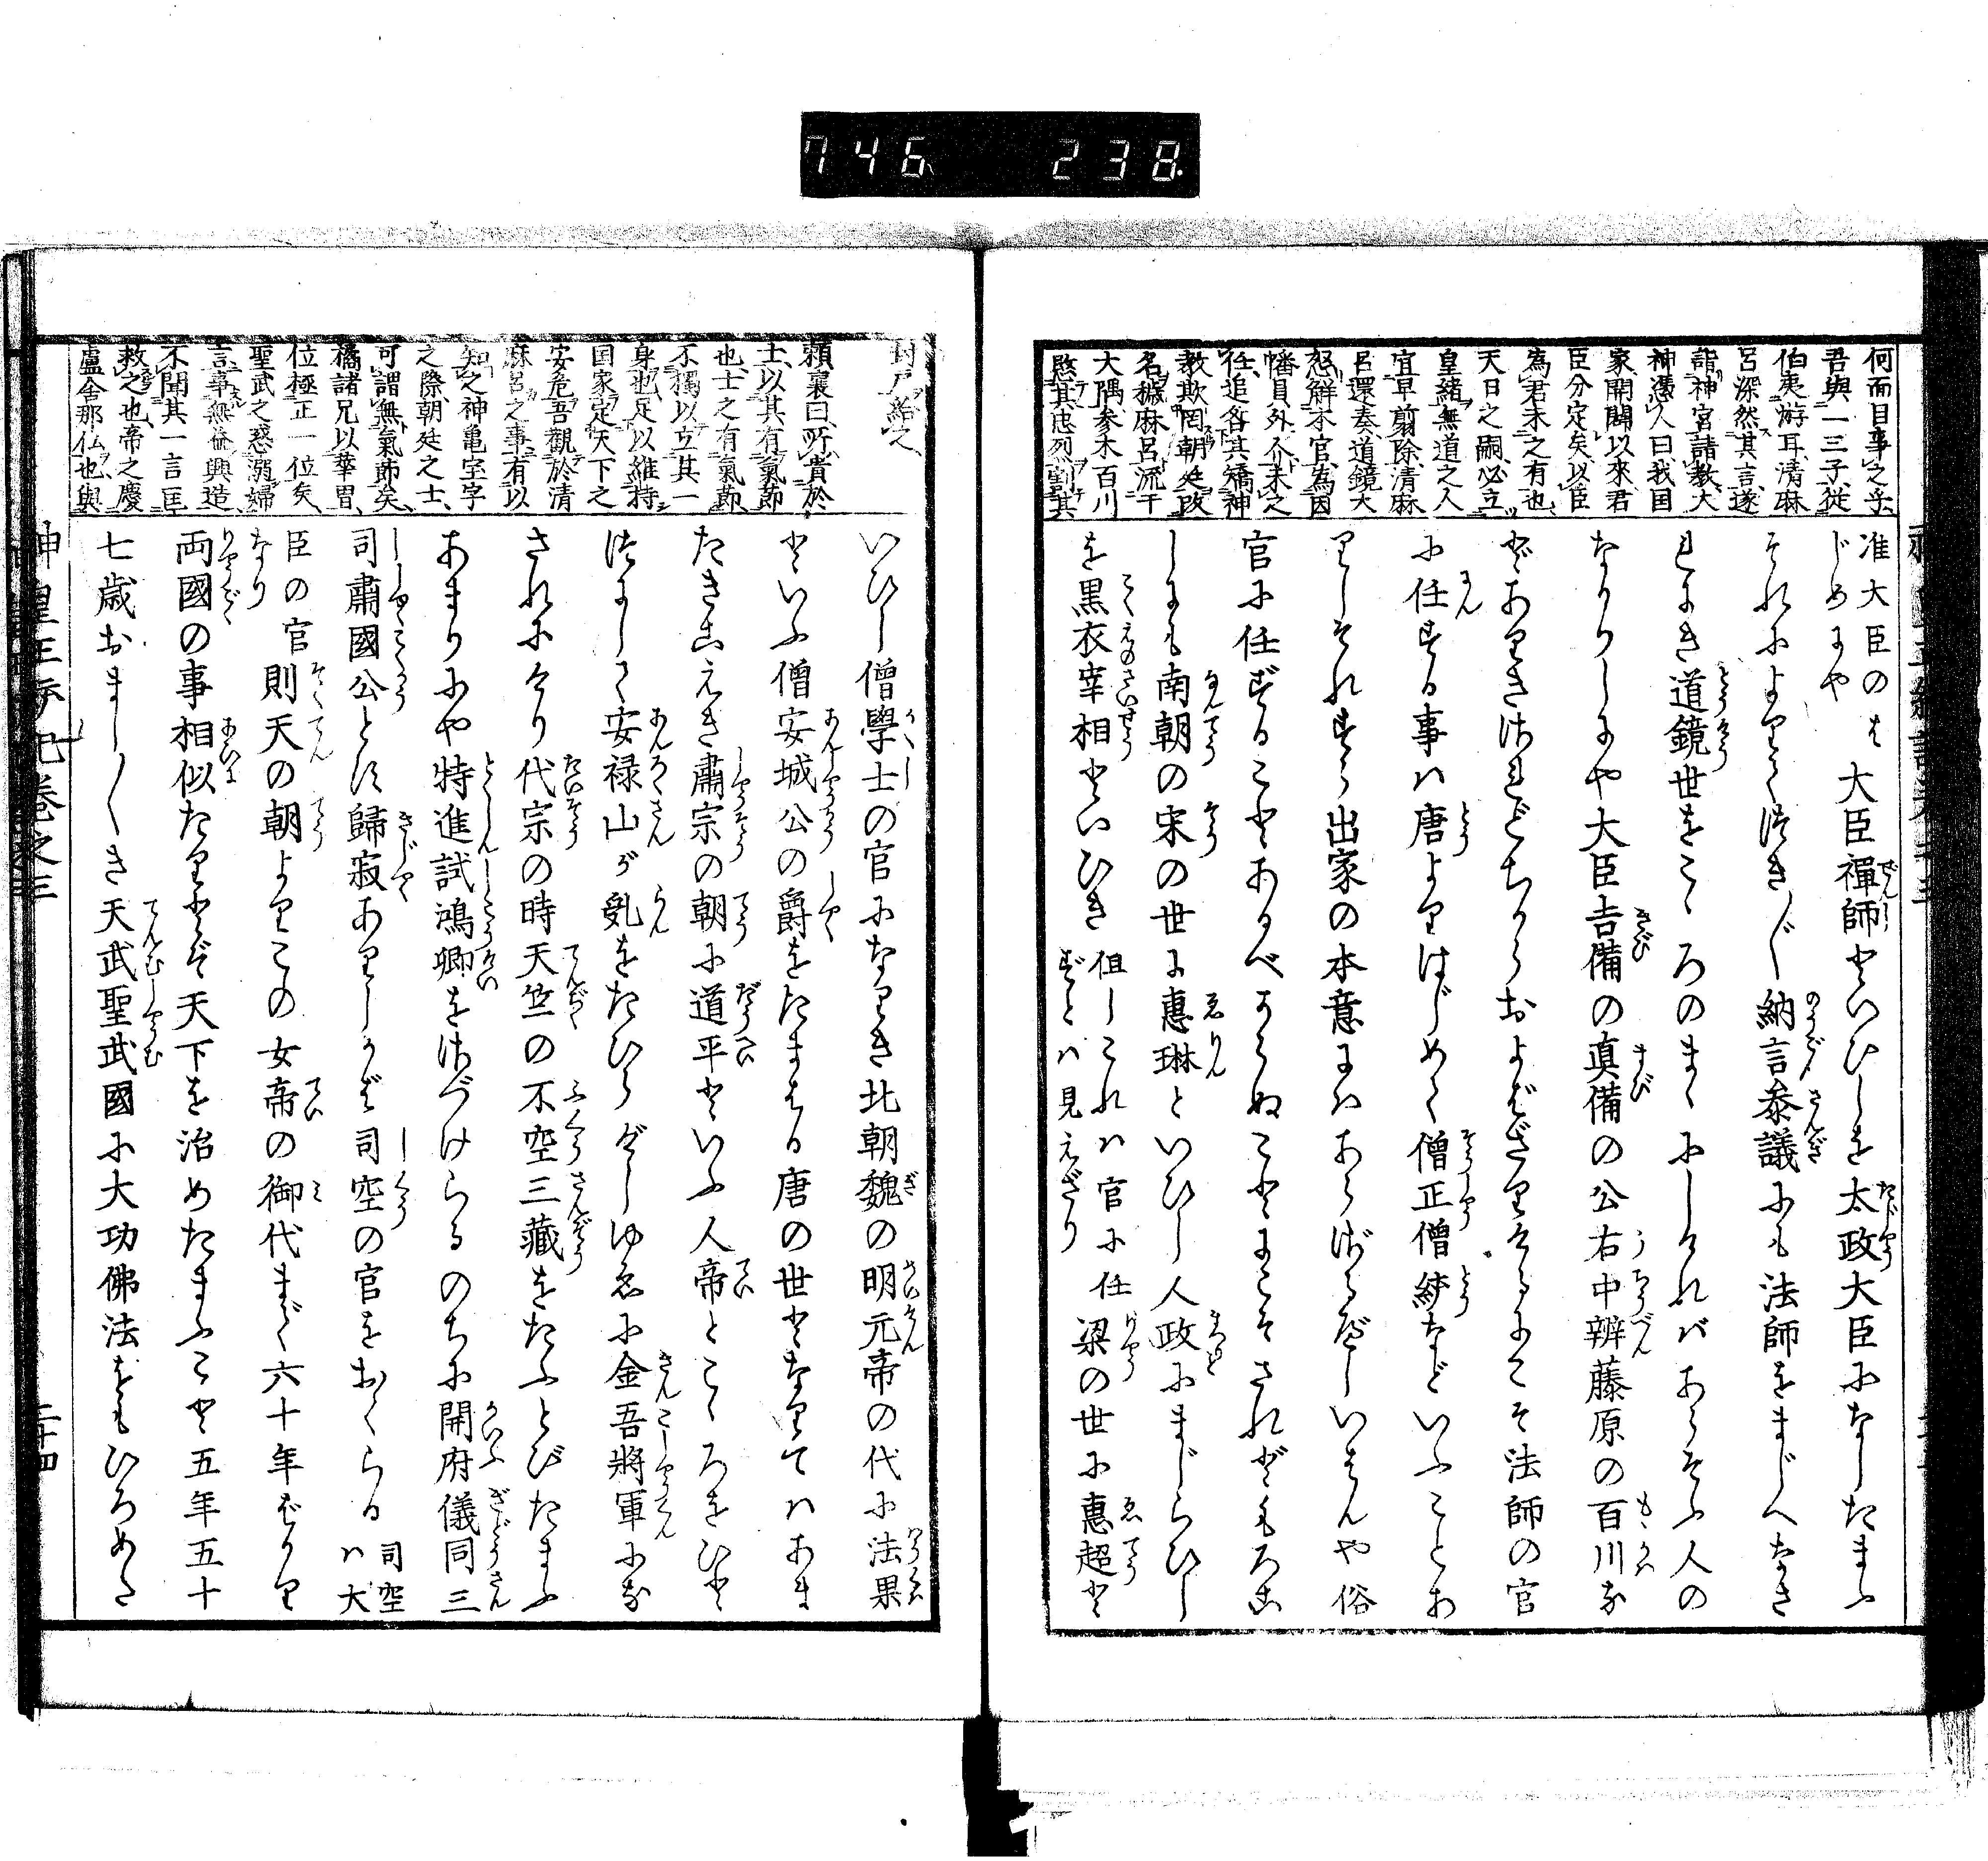 746 238
何而目事之乎
吾與一三子從
伯夷游耳清麻
呂深然其言遂
詣神宮請教大
神憑人曰我国
家開闢以來君
臣分定矣以臣
為君未之有也
天日之嗣必立
皇緒無道之人
宜早剪除清麻
呂還奏道鏡大
怒解本官為因
幡員外介未之
任追咎其矯神
教欺罔朝廷改
名穢麻呂流于
大隅参木百川
愍其忠烈割其
准大臣のはじめにや 大臣禪師といひしを太政大臣になしたまふ
それによりてつぎ〳〵納言叅議にも法師をまじへなさ
れにき道鏡世をこゝろのまゝにしければあらそふ人の
なかりしにや大臣吉備の真備の公右中辨藤原の百川な
どありきされどちからおよばざりけるにこそ法師の官
に任ずる事は唐よりはじめて僧正僧統などいふことあ
りしそれすら出家の本意にはあらざるべしいはんや俗
官に任ずることあるべからぬことにこそされどもろこ
しにも南朝の宋の世に惠琳といひし人政にまじらひし
を黒衣宰相といひき 但しこれは官に任ずとは見えざり 梁の世に惠超と
封戸給之
頼襄曰所貴於
士以其有氣節
也士之有氣節
不獨以立其一
身也足以維持
国家定天下之
安危吾觀於清
麻呂之事有以
知之神亀宝字
之際朝廷之士
可謂無氣節矣
橘諸兄以華冑
位極正一位矣
聖武之惑溺婦
言事無益興造
不聞其一言匡
救之也帝之慶
盧舎那仏也與
いひし僧學士の官になりき北朝魏の明元帝の代に法果
といふ僧安城公の爵をたまはる唐の世となりてはあま
たきこえき肅宗の朝に道平といふ人帝とこゝろをひと
つにして安禄山が乱をたひらげしゆゑに金吾將軍にな
されにけり代宗の時天竺の不空三藏をたふとびたまふ
あまりにや特進試鴻卿をさづけらるのちに開府儀同三
司肅國公とす歸寂ありしかば司空の官をおくらる 司空は大
臣の官なり 則天の朝よりこの女帝の御代まで六十年ばかり
両國の事相似たりとぞ天下を治めたまふこと五年五十
七歳おまし〳〵き天武聖武國に大功佛法をもひろめた
神皇正統記巻之三
二十四